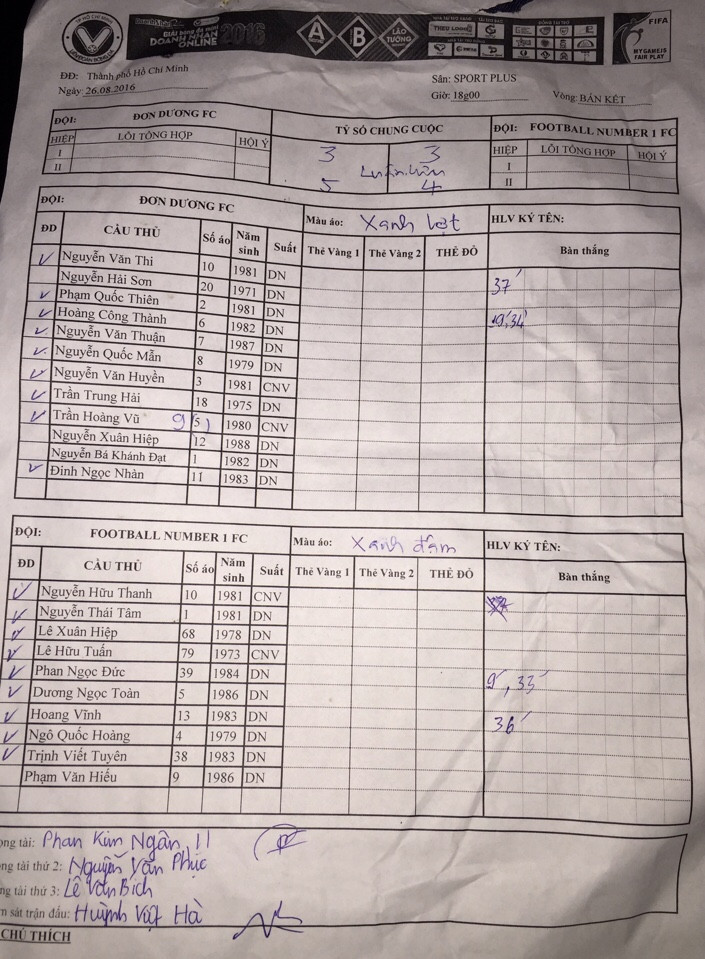 TP HỒ CHÍ MINH
DOANH NHÂN ONLINE 2016
A B LÃO TƯỚNG
FIFA
MY GAME IS FAIR PLAY
ĐĐ: Thành phố Hồ Chí Minh Sân: SPORT PLUS
Ngày: 26.08.2016 Giờ: 18g00 Vòng: BÁN KẾT
ĐỘI: ĐƠN DƯƠNG FC TỶ SỐ CHUNG CUỘC ĐỘI: FOOTBALL NUMBER 1 FC
HIỆP LỖI TỔNG HỢP HỘI Ý 3 3 HIỆP LỖI TỔNG HỢP HỘI Ý
I Luân lưu I
II 5 4 II
ĐỘI: ĐƠN DƯƠNG FC Màu áo: Xanh lợt HLV KÝ TÊN:
ĐD CẦU THỦ Số áo Năm sinh Suất Thẻ Vàng 1 Thẻ Vàng 2 THẺ ĐỎ Bàn thắng
Nguyễn Văn Thi 10 1981 DN
Nguyễn Hải Sơn 20 1971 DN 37'
Phạm Quốc Thiên 2 1981 DN
Hoàng Công Thành 6 1982 DN 9', 34'
Nguyễn Văn Thuận 7 1987 DN
Nguyễn Quốc Mẫn 8 1979 DN
Nguyễn Văn Huyền 3 1981 CNV
Trần Trung Hải 18 1975 DN
Trần Hoàng Vũ 9 (5) 1980 CNV
Nguyễn Xuân Hiệp 12 1988 DN
Nguyễn Bá Khánh Đạt 1 1982 DN
Đinh Ngọc Nhàn 11 1983 DN
ĐỘI: FOOTBALL NUMBER 1 FC Màu áo: Xanh đậm HLV KÝ TÊN:
ĐD CẦU THỦ Số áo Năm sinh Suất Thẻ Vàng 1 Thẻ Vàng 2 THẺ ĐỎ Bàn thắng
Nguyễn Hữu Thanh 10 1981 CNV
Nguyễn Thái Tâm 1 1981 DN
Lê Xuân Hiệp 68 1978 DN
Lê Hữu Tuấn 79 1973 CNV
Phan Ngọc Đức 39 1984 DN 9', 33'
Dương Ngọc Toàn 5 1986 DN
Hoang Vĩnh 13 1983 DN 36'
Ngô Quốc Hoàng 4 1979 DN
Trịnh Viết Tuyên 38 1983 DN
Phạm Văn Hiếu 9 1986 DN
ọng tài: Phan Kim Ngân
ng tài thứ 2: Nguyễn Văn Phục
ng tài thứ 3: Lê Văn Bích
m sát trận đấu: Huỳnh Việt Hà
CHÚ THÍCH